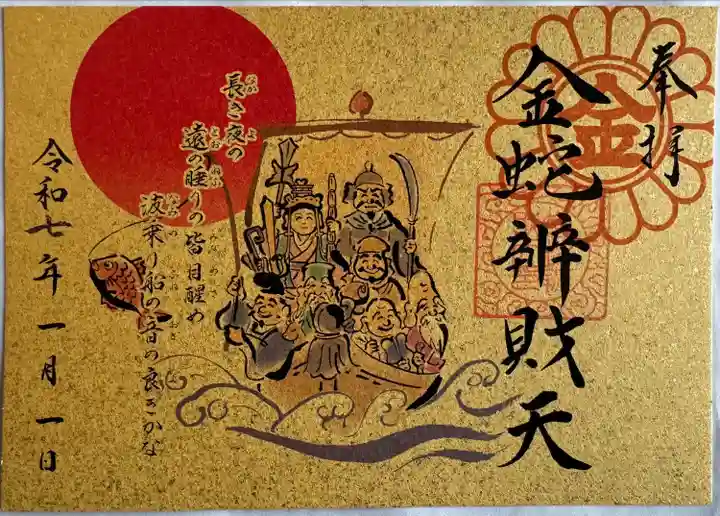 奉拝
金
金蛇辨財天
長き夜の
遠の睡りの皆目醒め
波乗り船の音の良きかな
令和七年一月一日